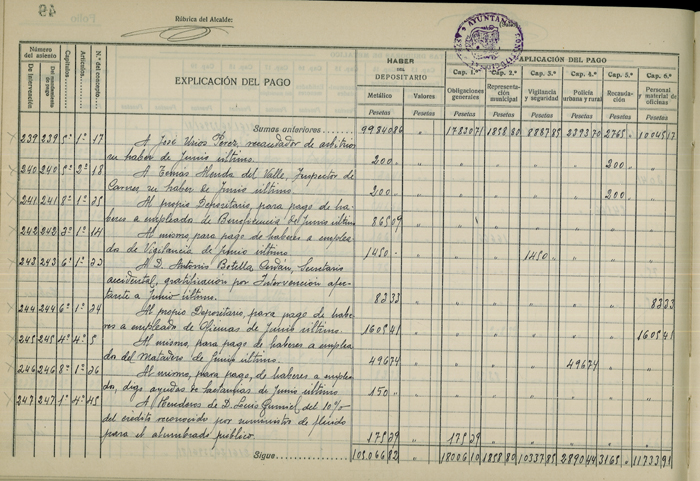 49
Folio
Rúbrica del Alcalde:
AYUNTAMIENTO CONSTITUCIONAL
Número del asiento
De Intervención
Del mandamiento de pago
Capítulos
Artículos
N.º del concepto
EXPLICACIÓN DEL PAGO
HABER DEL DEPOSITARIO
Metálico
Valores
APLICACIÓN DEL PAGO
Cap. 1.º Cap. 2.º Cap. 3.º Cap. 4.º Cap. 5.º Cap. 6.º
Obligaciones generales
Representación municipal
Vigilancia y seguridad
Policía urbana y rural
Recaudación
Personal y material de oficinas
Pesetas Pesetas Pesetas Pesetas Pesetas Pesetas Pesetas Pesetas
Sumas anteriores 99840 86 " 17830 71 1858 80 8887 85 2393 70 2765 " 10045 17
239 239 5º 1º 17 A José Urios Pérez, recaudador de arbitrios
su haber de Junio último. 200 " 200 "
240 240 5º 2º 18 A Tomas del Valle, Inspector de
Carnes su haber de Junio último 200 " 200 "
241 241 8º 1º 25 Al propio Depositario, para pago de ha-
beres a empleados de Beneficencia de Junio último 865 09
242 242 3º 1º 14 Al mismo, para pago de haberes a emplea-
dos de Vigilancia de Junio último. 1450 " 1450 "
243 243 6º 1º 23 A D. Antonio Botella, Secretario
accidental, gratificación por Intervención
a Junio último. 83 33 83 33
244 244 6º 1º 24 Al propio Depositario, para pago de habe-
res a empleados de Oficinas de Junio último. 1605 41 1605 41
245 245 4º 4º 5 Al mismo, para pago de haberes a emplea-
dos del Matadero de Junio último. 496 74 496 74
246 246 8º 1º 26 Al mismo, para pago, de haberes a emplea-
dos, digo ayudas de lactancias de Junio último 150 "
247 247 1º 4º 45 A Herederos de D. Luis del 10%
del crédito reconocido por suministro de fluido
para el alumbrado publico. 175 39 175 39
Sigue 105.066 82 18006 10 1858 80 10337 85 2890 44 3165 " 11733 91